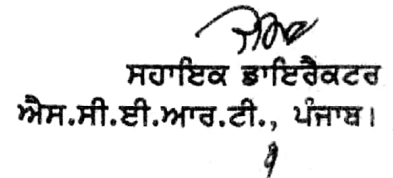 ਸਹਾਇਕ ਡਾਇਰੈਕਟਰ
ਐਸ.ਸੀ.ਈ.ਆਰ.ਟੀ., ਪੰਜਾਬ।